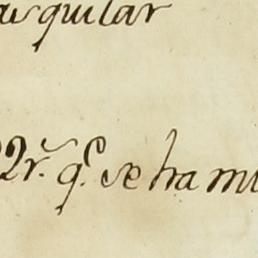 asquilar
2r. q.e se ha mu